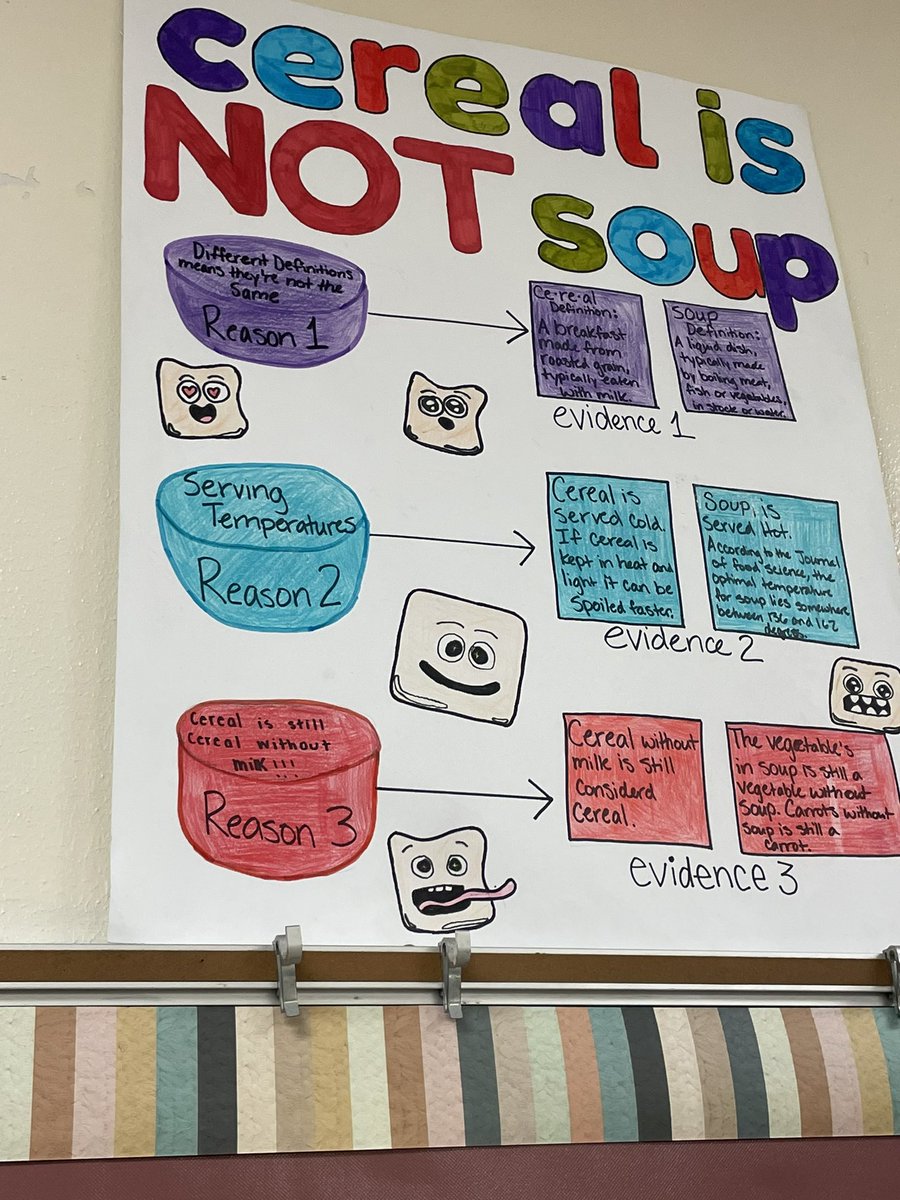 cereal is
NOT soup
Different Definitions
means they're not the
Same
Reason 1
Ce·re·al
Definition:
A breakfast
made from
roasted grain,
typically eaten
with milk.
Soup
Definition:
A liquid dish,
typically made
by boiling meat,
fish or vegetables,
in stock or water.
evidence 1
Serving
Temperatures
Reason 2
Cereal is
Served cold.
If cereal is
kept in heat and
light it can be
Spoiled faster.
Soup, is
Served Hot.
According to the Journal
of food science, the
optimal temperature
for soup lies somewhere
between 136 and 162
degrees.
evidence 2
Cereal is still
Cereal without
milk!!!
Reason 3
Cereal without
milk is still
Considerd
Cereal.
The vegetable's
in soup is still a
vegetable without
Soup. Carrots without
soup is still a
carrot.
evidence 3